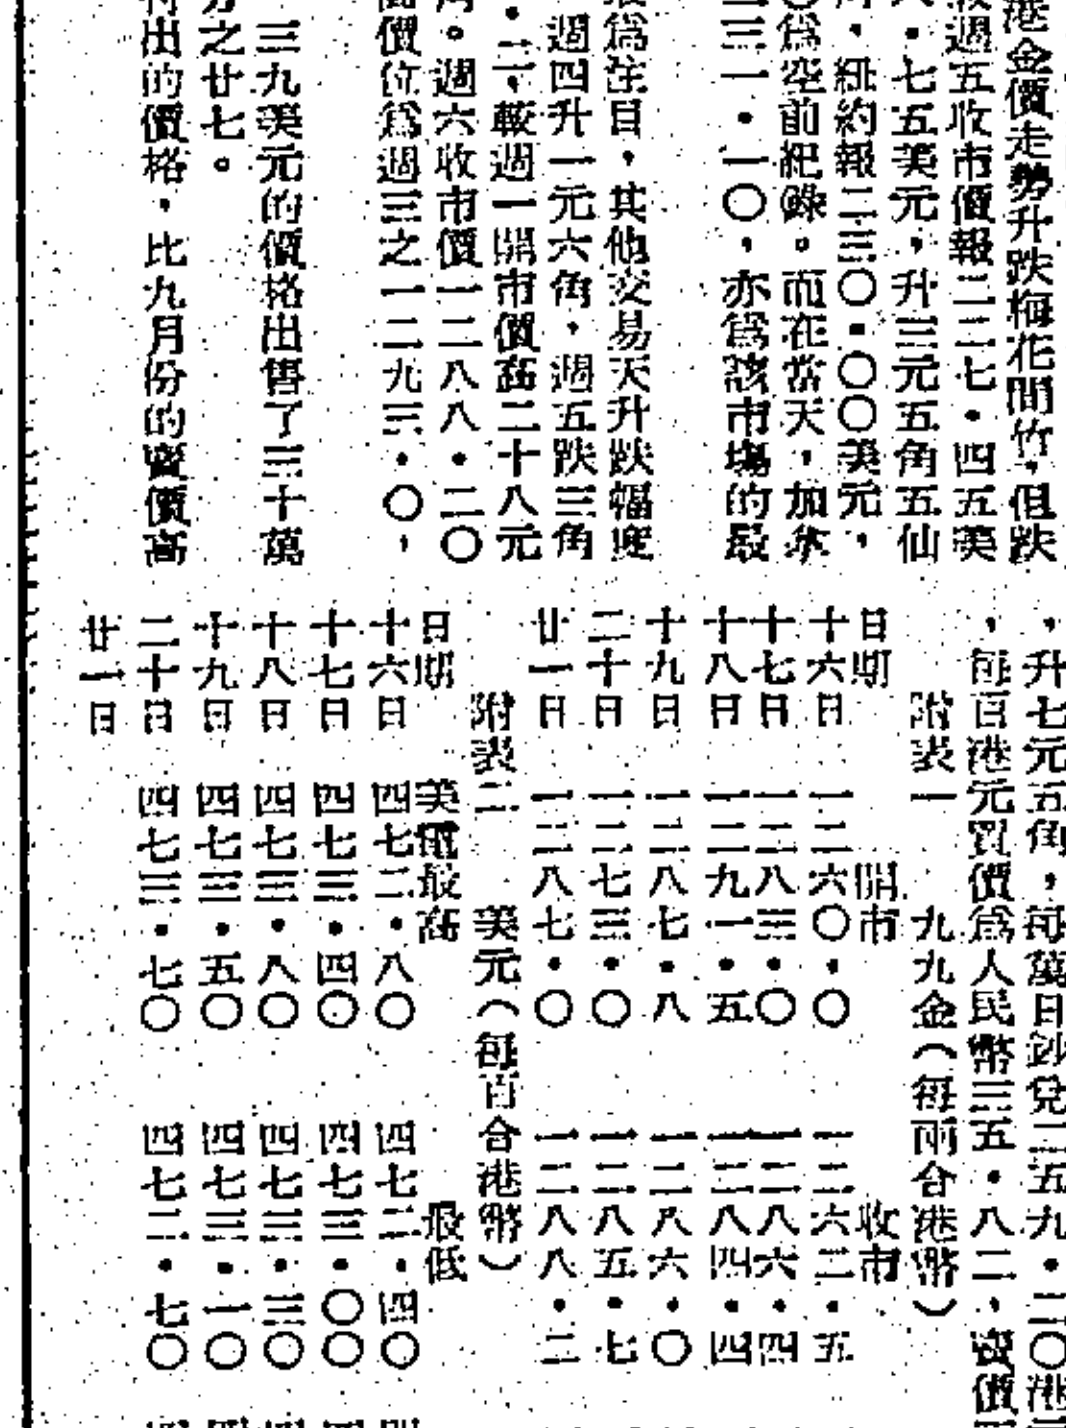 港金價走勢升跌梅花間竹，但跌
週五收市價報二二七・四五美
・七五美元，升三元五角五仙
，紐約報二三〇・〇〇美元，
〇爲空前紀錄。而在當天，加拿
三一・一〇，亦爲該市場的最
爲注目，其他交易天升跌幅度
週四升一元六角，週五跌三角
・二，較週一開市價高二十八元
。週六收市價一二八八・二〇
價位爲週三之一二九三・〇，
三九美元的價格出售了三十萬
之廿七。
出的價格，比九月份的賣價高
，升七元五角，每萬日鈔兌二五九・二〇港
，每百港元買價爲人民幣三五・八二，賣價
附表一　九九金（每兩合港幣）
日期　開市　收市
十六日　一二六〇・〇　一二六二・五
十七日　一二八三・〇　一二八六・四
十八日　一二九一・五　一二八四・四
十九日　一二八七・八　一二八六・〇
二十日　一二七三・〇　一二八五・七
廿一日　一二八七・〇　一二八八・二
附表二　美元（每百合港幣）
日期　美電最高　最低
十六日　四七二・八〇　四七二・四〇
十七日　四七三・四〇　四七三・〇〇
十八日　四七三・八〇　四七三・三〇
十九日　四七三・五〇　四七三・一〇
二十日　四七三・七〇　四七二・七〇
廿一日